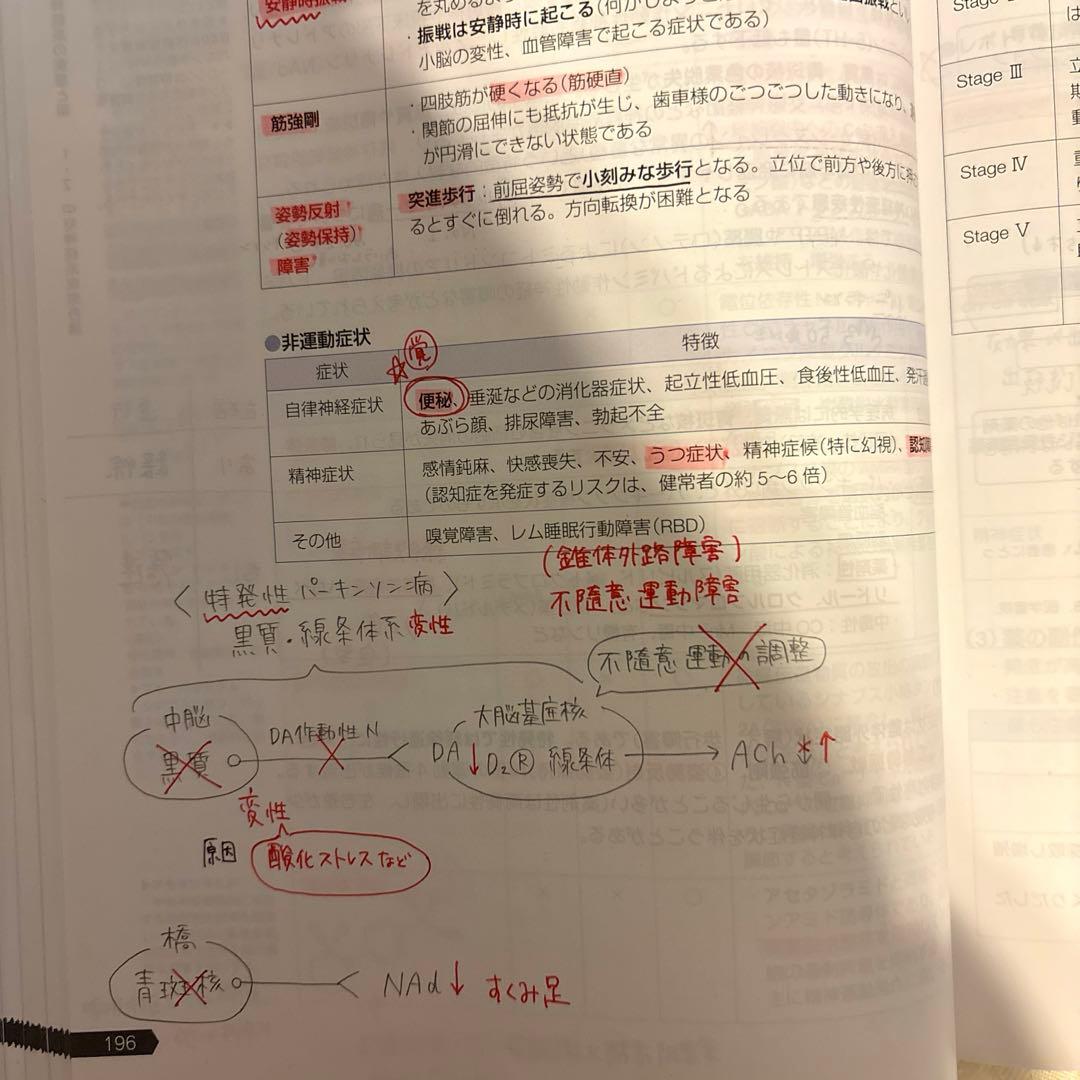 安静時振戦
・振戦は安静時に起こる
小脳の変性、血管障害で起こる症状である)
筋強剛
・四肢筋が硬くなる(筋硬直)
・関節の屈伸にも抵抗が生じ、歯車様のごつごつした動きになり、
が円滑にできない状態である
姿勢反射
(姿勢保持)
障害
突進歩行:前屈姿勢で小刻みな歩行となる。立位で前方や後方に
るとすぐに倒れる。方向転換が困難となる
Stage Ⅲ
Stage Ⅳ
Stage Ⅴ
●非運動症状
症状
特徴
☆覚
自律神経症状
便秘、垂涎などの消化器症状、起立性低血圧、食後性低血圧、発汗
あぶら顔、排尿障害、勃起不全
精神症状
感情鈍麻、快感喪失、不安、うつ症状、精神症候(特に幻視)、認知
(認知症を発症するリスクは、健常者の約5~6倍)
その他
嗅覚障害、レム睡眠行動障害(RBD)
(錐体外路障害)
不随意運動障害
〈特発性パーキンソン病〉
黒質・線条体系変性
不随意運動の調整
中脳
黒質
DA作動性N
大脳基底核
DA↓ D₂Ⓡ 線条体
ACh ↑
変性
原因
酸化ストレスなど
橋
青斑核
NAd↓ すくみ足
196